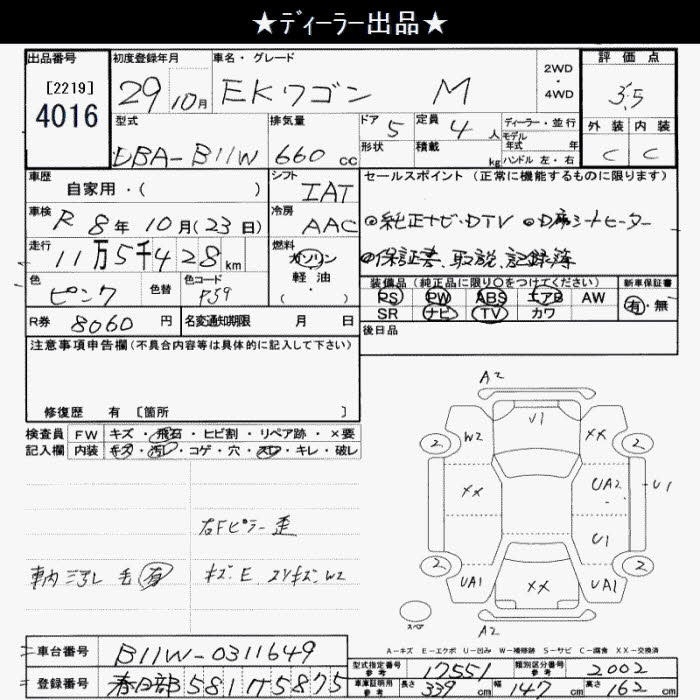 ★ディーラー出品★
出品番号 初度登録年月 車名・グレード 2WD・4WD 評価点
[2219] 4016 29 10月 EKワゴン M 3.5
型式 排気量 ドア 5 定員 4人 ディーラー・並行 外装 内装
形状 積載 kg モデル年式 年 ハンドル 左・右
DBA-B11W 660 CC C C
車歴 自家用・( ) シフト IAT セールスポイント (正常に機能するものに限ります)
車検 R 8年 10月(23日) 冷房 AAC ◎純正ナビ・DTV ◎D席シートヒーター
走行 11万5千428km 燃料 ガソリン 軽油・( ) ◎保証書、取説、記録簿
色 ピンク 色替 色コード P59 装備品 (純正品に限り○をつけてください) 新車保証書
PS PW ABS エアB AW 有・無
SR ナビ TV カワ
R券 8060円 名変通知期限 月 日 後日品
注意事項申告欄 (不具合内容等は具体的に記入して下さい)
修復歴 有 [箇所 ]
検査員 FW キズ・飛石・ヒビ割・リペア跡・×要
記入欄 内装 キズ・汚レ・コゲ・穴・スレ・キレ・破レ
A2
V1
W2 XX
2 2
XX UA2 U1
U1
2 2
UA1 XX UA1
スペア
A2
右Fピラー歪
車内ヨゴレ 毛有 キズ.E スリキズ.W2
A-キズ E-エクボ U-凹み W-補修跡 S-サビ C-腐食 XX-交換済
車台番号 B11W-0311649
登録番号 春日部 581 175875
型式指定番号 参考 17551 類別区分番号 参考 2002
車庫証明用 参考 長さ 339cm 幅 147cm 高さ 162cm